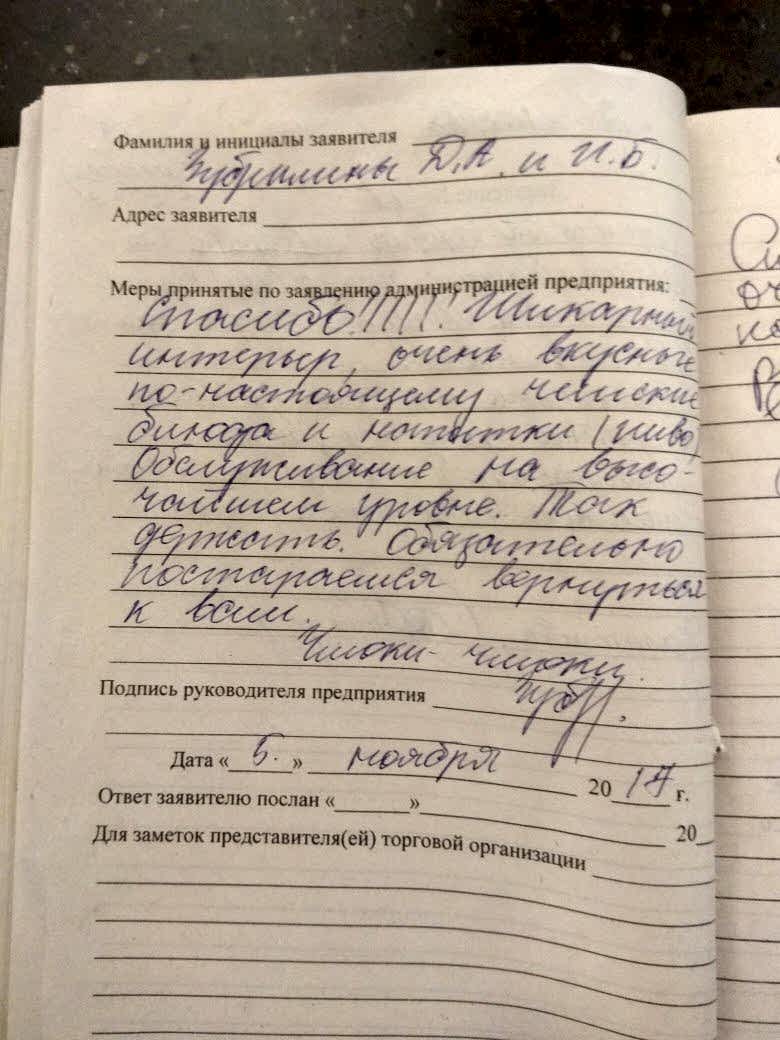 Фамилия и инициалы заявителя
Зубрилины Д.А. и И.Б.
Адрес заявителя
Меры принятые по заявлению администрацией предприятия:
Спасибо!!!!! Шикарный
интерьер, очень вкусные
по-настоящему чешские
блюда и напитки (пиво)
Обслуживание на высо-
чайшем уровне. Так
держать. Обязательно
постараемся вернуться
к вам.
Чмоки-чмоки.
Подпись руководителя предприятия
Дата «5.» ноября 2017 г.
Ответ заявителю послан «______» 20
Для заметок представителя(ей) торговой организации